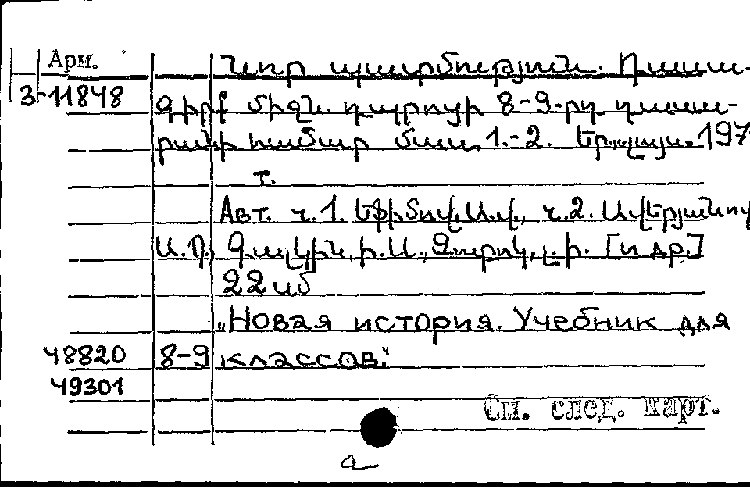 Арм.
Նոր պատմություն. Դասա-
3-11848
գիրք միջն. դպրոցի 8-9-րդ դասա-
րանի համար մաս. 1.-2. 197
т.
Авт. ч.1. Եֆիմով, Ա.Վ., ч.2.
Ա. Գալկին, Ի.Ա., [и др.]
22 սմ
„Новая история. Учебник для
48820 8-9 классов."
49301
См. след. карт.
а